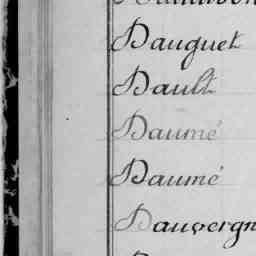 Dauguet
Dault
Daumé
Daumé
Dauvergn